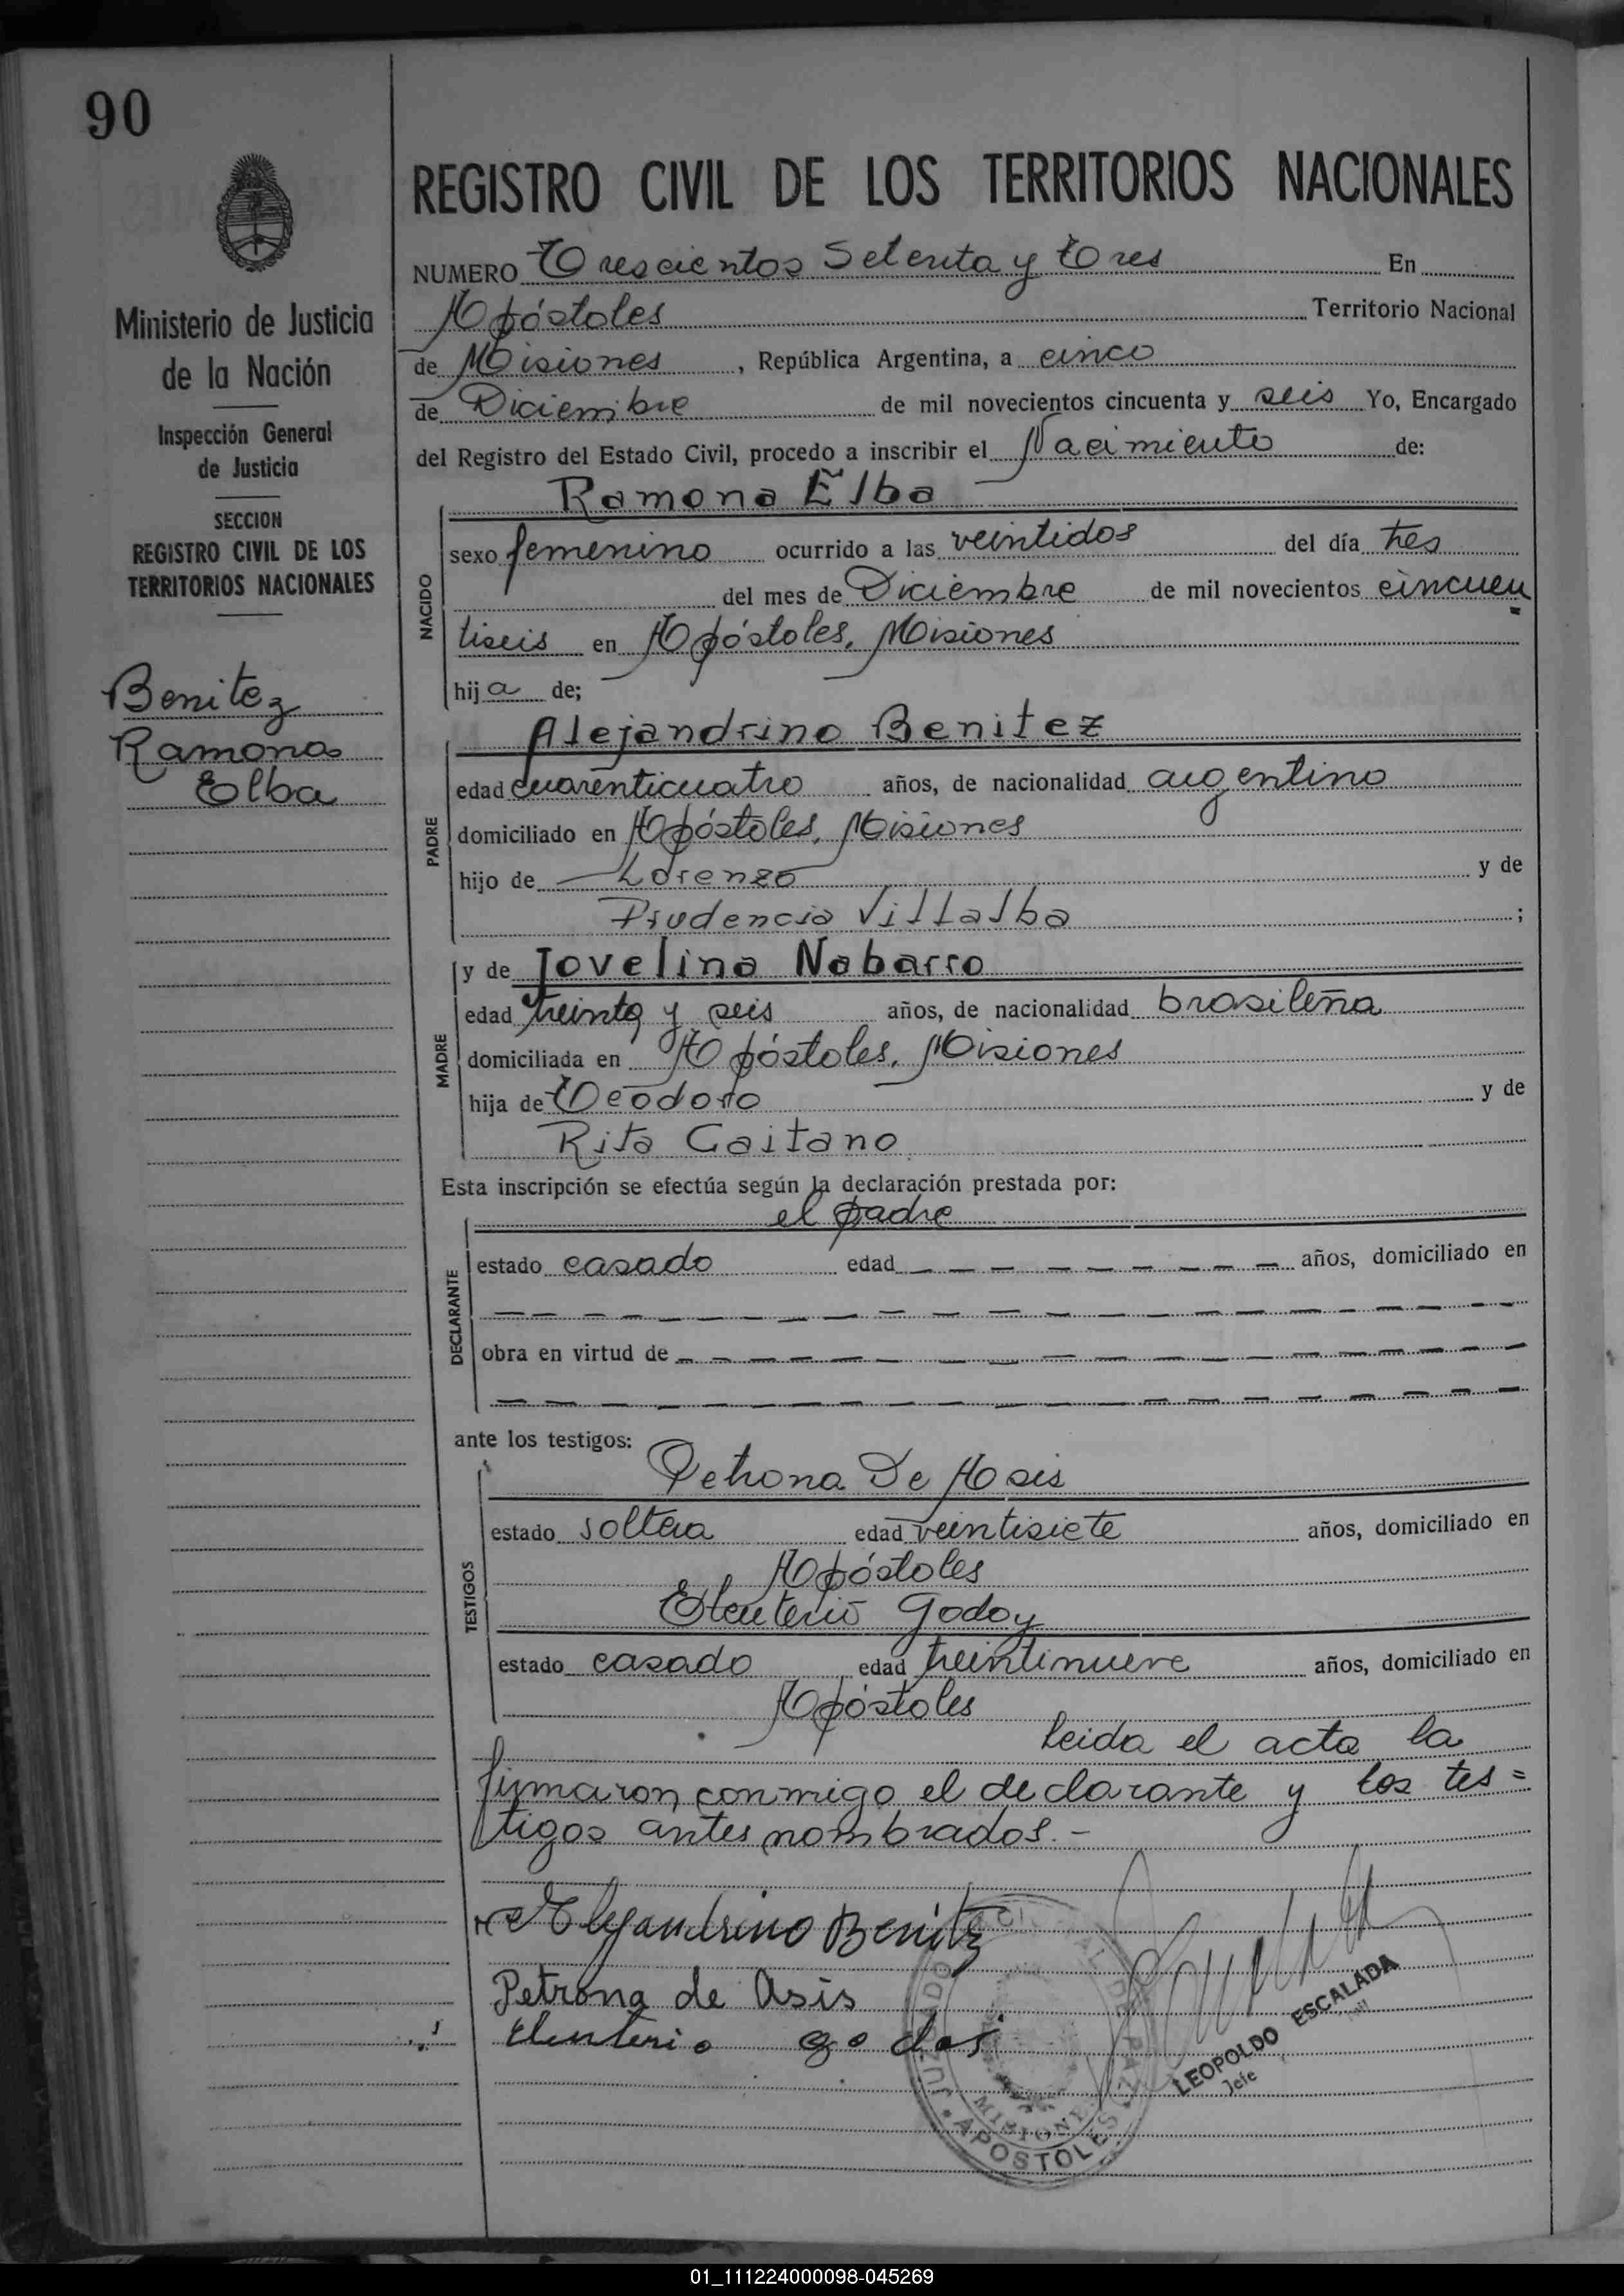 90
Ministerio de Justicia
de la Nación
Inspección General
de Justicia
SECCION
REGISTRO CIVIL DE LOS
TERRITORIOS NACIONALES
Benitez
Ramona
Elba
REGISTRO CIVIL DE LOS TERRITORIOS NACIONALES
NUMERO Trescientos Setenta y tres En
Apóstoles Territorio Nacional
de Misiones, República Argentina, a cinco
de Diciembre de mil novecientos cincuenta y seis Yo, Encargado
del Registro del Estado Civil, procedo a inscribir el Nacimiento de:
Ramona Elba
NACIDO
sexo femenino ocurrido a las veintidos del día tres
del mes de Diciembre de mil novecientos cincuen
tiseis en Apóstoles, Misiones
hija de;
Alejandrino Benitez
PADRE
edad cuarenticuatro años, de nacionalidad argentino
domiciliado en Apóstoles, Misiones
hijo de Lorenzo y de
Prudencia Villalba ;
y de Jovelina Nabarro
MADRE
edad treinta y seis años, de nacionalidad brasileña
domiciliada en Apóstoles, Misiones
hija de Teodoro y de
Rita Gaitano
Esta inscripción se efectúa según la declaración prestada por:
el padre
DECLARANTE
estado casado edad años, domiciliado en
obra en virtud de
ante los testigos:
Petrona De Asis
TESTIGOS
estado soltera edad veintisiete años, domiciliado en
Apóstoles
Eleuterio Godoy
estado casado edad treintinueve años, domiciliado en
Apóstoles
Leida el acta la
firmaron conmigo el declarante y los tes=
tigos antes nombrados.-
Alejandrino Benitz
Petrona de Asis
Eleuterio godoi
JUZGADO DE PAZ
MISIONES
APOSTOLES
LEOPOLDO ESCALADA
Jefe
01_111224000098-045269